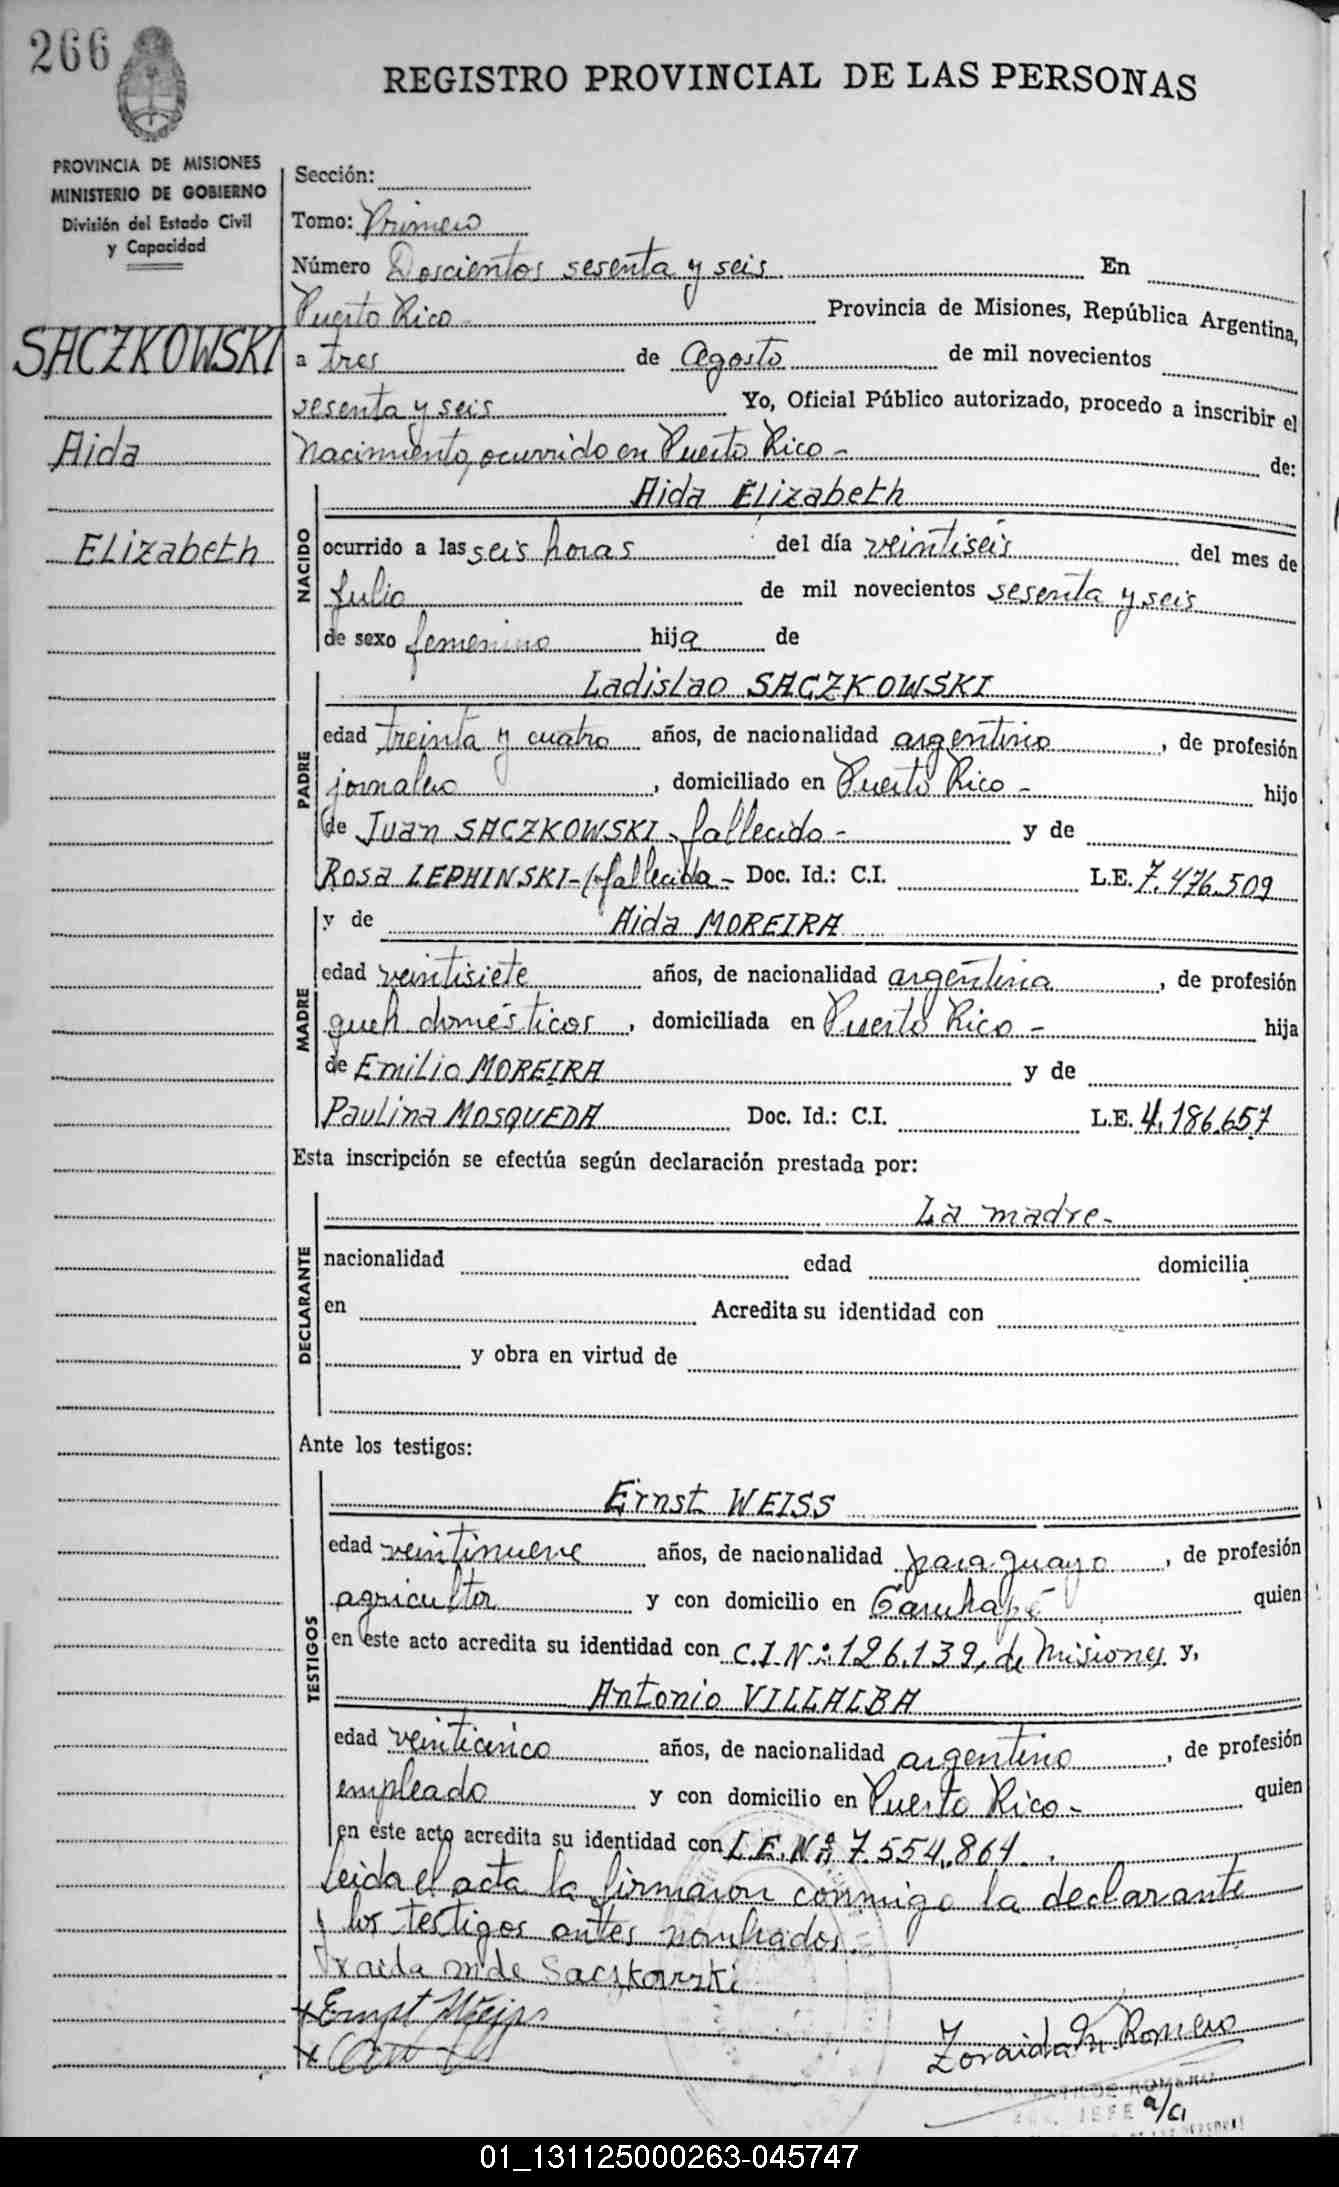 266
REGISTRO PROVINCIAL DE LAS PERSONAS
PROVINCIA DE MISIONES
MINISTERIO DE GOBIERNO
División del Estado Civil
y Capacidad
SACZKOWSKI
Aida
Elizabeth
Sección:
Tomo: Primero
Número Doscientos sesenta y seis En
Puerto Rico Provincia de Misiones, República Argentina,
a tres de Agosto de mil novecientos
sesenta y seis Yo, Oficial Público autorizado, procedo a inscribir el
Nacimiento, ocurrido en Puerto Rico - de:
NACIDO
Aida Elizabeth
ocurrido a las seis horas del día veintiseis del mes de
Julio de mil novecientos sesenta y seis
de sexo femenino hija de
PADRE
Ladislao SACZKOWSKI
edad treinta y cuatro años, de nacionalidad argentino, de profesión
jornalero, domiciliado en Puerto Rico - hijo
de Juan SACZKOWSKI - fallecido - y de
Rosa LEPHINSKI - fallecida - Doc. Id.: C.I. L.E. 7.476.509
MADRE
y de Aida MOREIRA
edad veintisiete años, de nacionalidad argentina, de profesión
queh domésticos, domiciliada en Puerto Rico - hija
de Emilio MOREIRA y de
Paulina MOSQUEDA Doc. Id.: C.I. L.E. 4.186.657
Esta inscripción se efectúa según declaración prestada por:
DECLARANTE
La madre-
nacionalidad edad domicilia
en Acredita su identidad con
y obra en virtud de
Ante los testigos:
TESTIGOS
Ernst WEISS
edad veintinueve años, de nacionalidad paraguayo, de profesión
agricultor y con domicilio en Garuhapé quien
en este acto acredita su identidad con C.I.Nº: 126.139, de Misiones y,
Antonio VILLALBA
edad veinticinco años, de nacionalidad argentino, de profesión
empleado y con domicilio en Puerto Rico - quien
en este acto acredita su identidad con L.E.Nº 7.554.864
Leida el acta la firmaron conmigo la declarante
y los testigos antes nombrados.
de Saczkowski
Ernst Weiss
Zoraida M. Romero
ROMERO
JEFE a/c
01_131125000263-045747